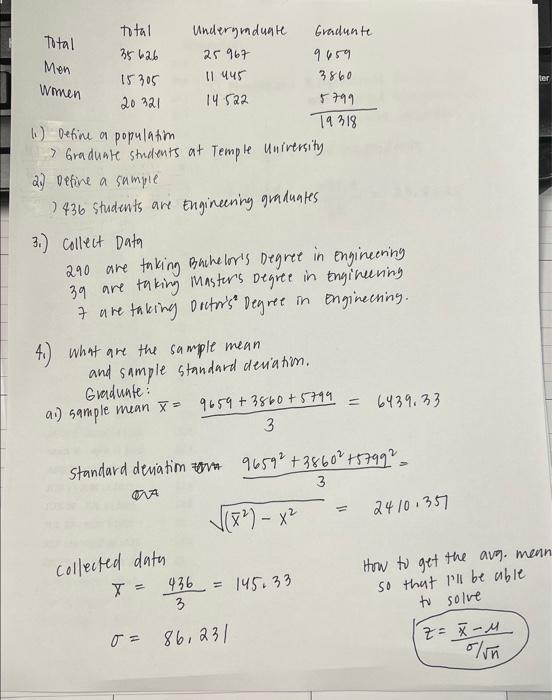 Total Undergraduate Graduate
Total 35 626 25 967 9 659
Men 15 305 11 445 3860
Women 20 321 14 522 5 799
19 318
1.) Define a population
> Graduate students at Temple University
2.) Define a sample
> 436 students are Engineering graduates
3.) Collect Data
290 are taking Bachelor's Degree in engineering
39 are taking Master's Degree in engineering
7 are taking Doctor's Degree in engineering.
4.) What are the sample mean
and sample standard deviation.
Graduate:
a.) sample mean x̄ = (9659 + 3860 + 5799)/3 = 6439.33
Standard deviation (9659² + 3860² + 5799²)/3 =
√(x̄²) - x² = 2410.357
Collected data
x̄ = 436/3 = 145.33
σ = 86.231
How to get the avg. mean
so that I'll be able
to solve
z = (x̄ - μ)/(σ/√n)